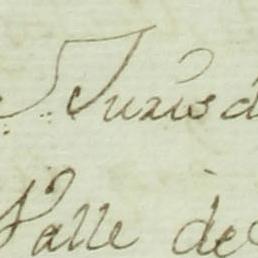 Jurisd
Valle de